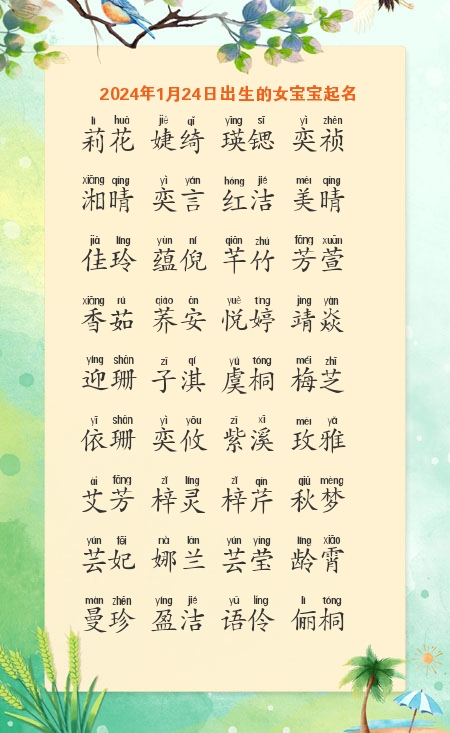 2024年1月24日出生的女宝宝起名
lì huā jié qǐ yīng sī yì zhēn
莉花 婕绮 瑛锶 奕祯
xiāng qíng yì yán hóng jié měi qíng
湘晴 奕言 红洁 美晴
jiā líng yùn ní qiān zhú fāng xuān
佳玲 蕴倪 芊竹 芳萱
xiāng rú qiáo ān yuè tíng jìng yàn
香茹 荞安 悦婷 靖焱
yíng shān zǐ qí yú tóng méi zhī
迎珊 子淇 虞桐 梅芝
yī shān yì yōu zǐ xī méi yǎ
依珊 奕攸 紫溪 玫雅
ài fāng zǐ líng zǐ qín qiū mèng
艾芳 梓灵 梓芹 秋梦
yún fēi nà lán yún yíng líng xiāo
芸妃 娜兰 芸莹 龄霄
màn zhēn yíng jié yǔ líng lì tóng
曼珍 盈洁 语伶 俪桐